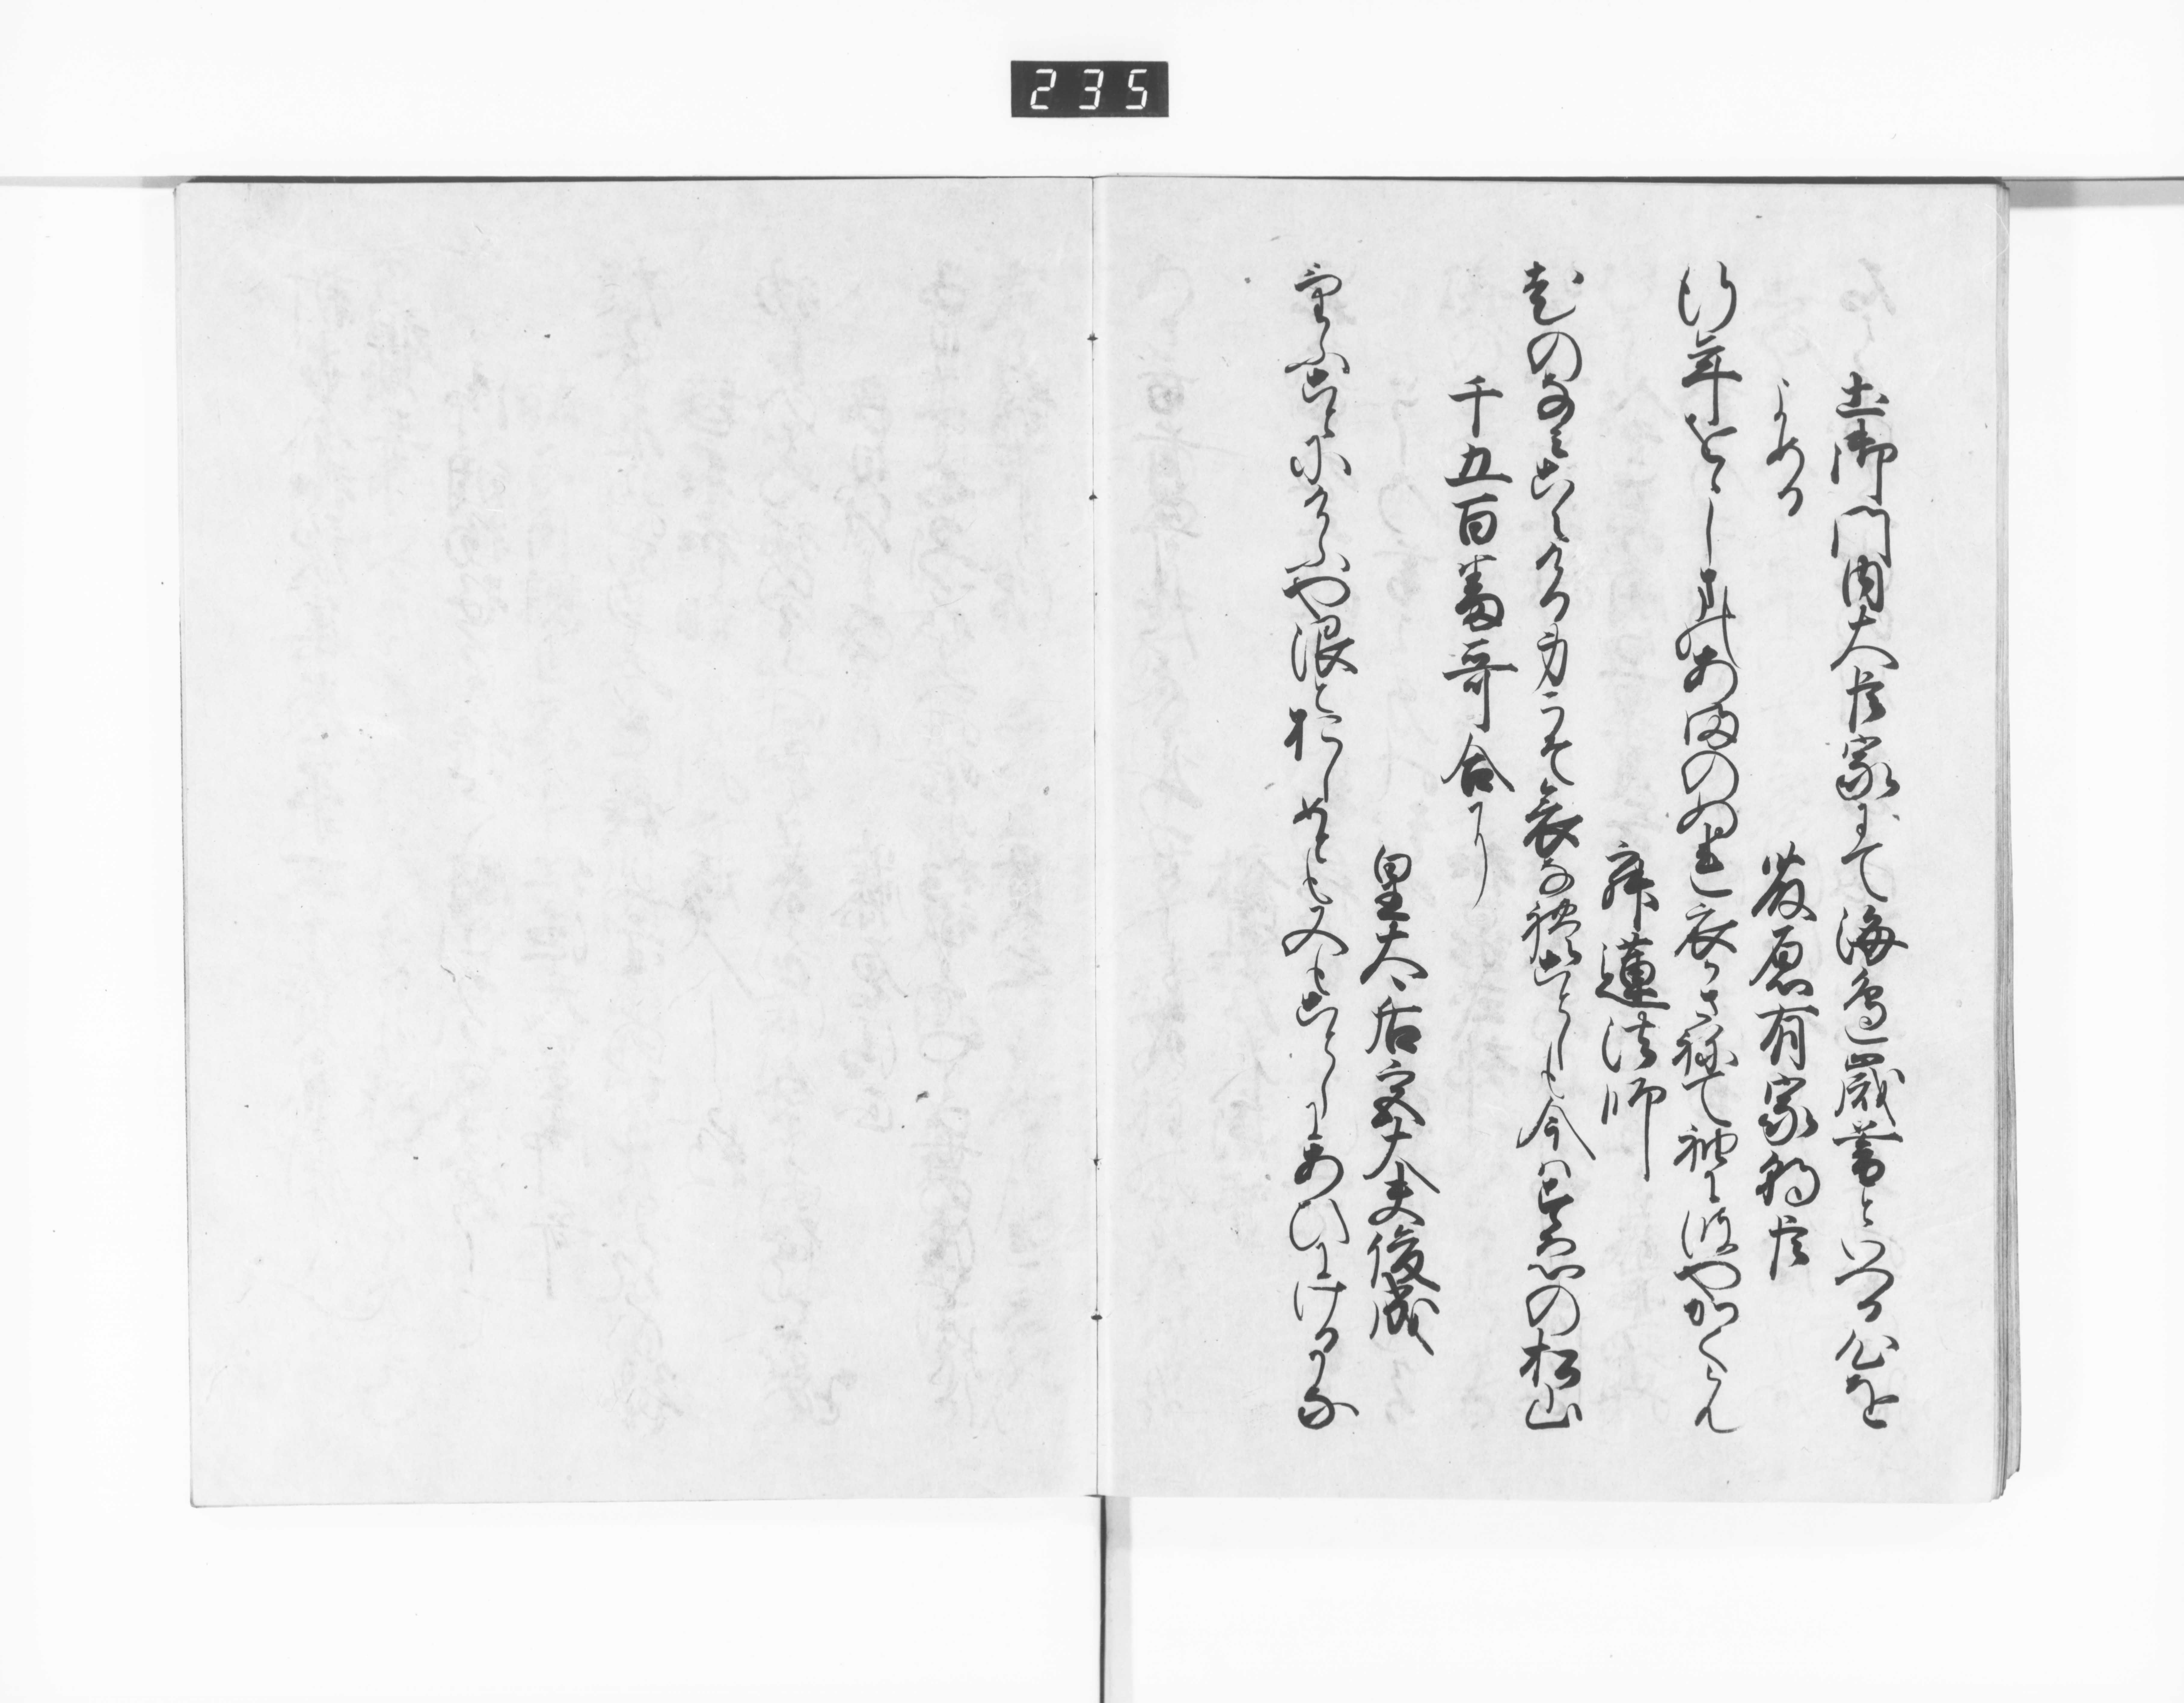 235
土御門内大臣家にて海辺歳暮といへる心を
よめる
藤原有家朝臣
行年をゝしまのあまのぬれ衣かさねて袖に波やかくらん
寂蓮法師
老のなみこえける身こそ哀なれことしも今はすゑの松山
千五百番哥合に
皇太后宮大夫俊成
けふことにけふや限とおしめとも又もことしにあひにけるかな